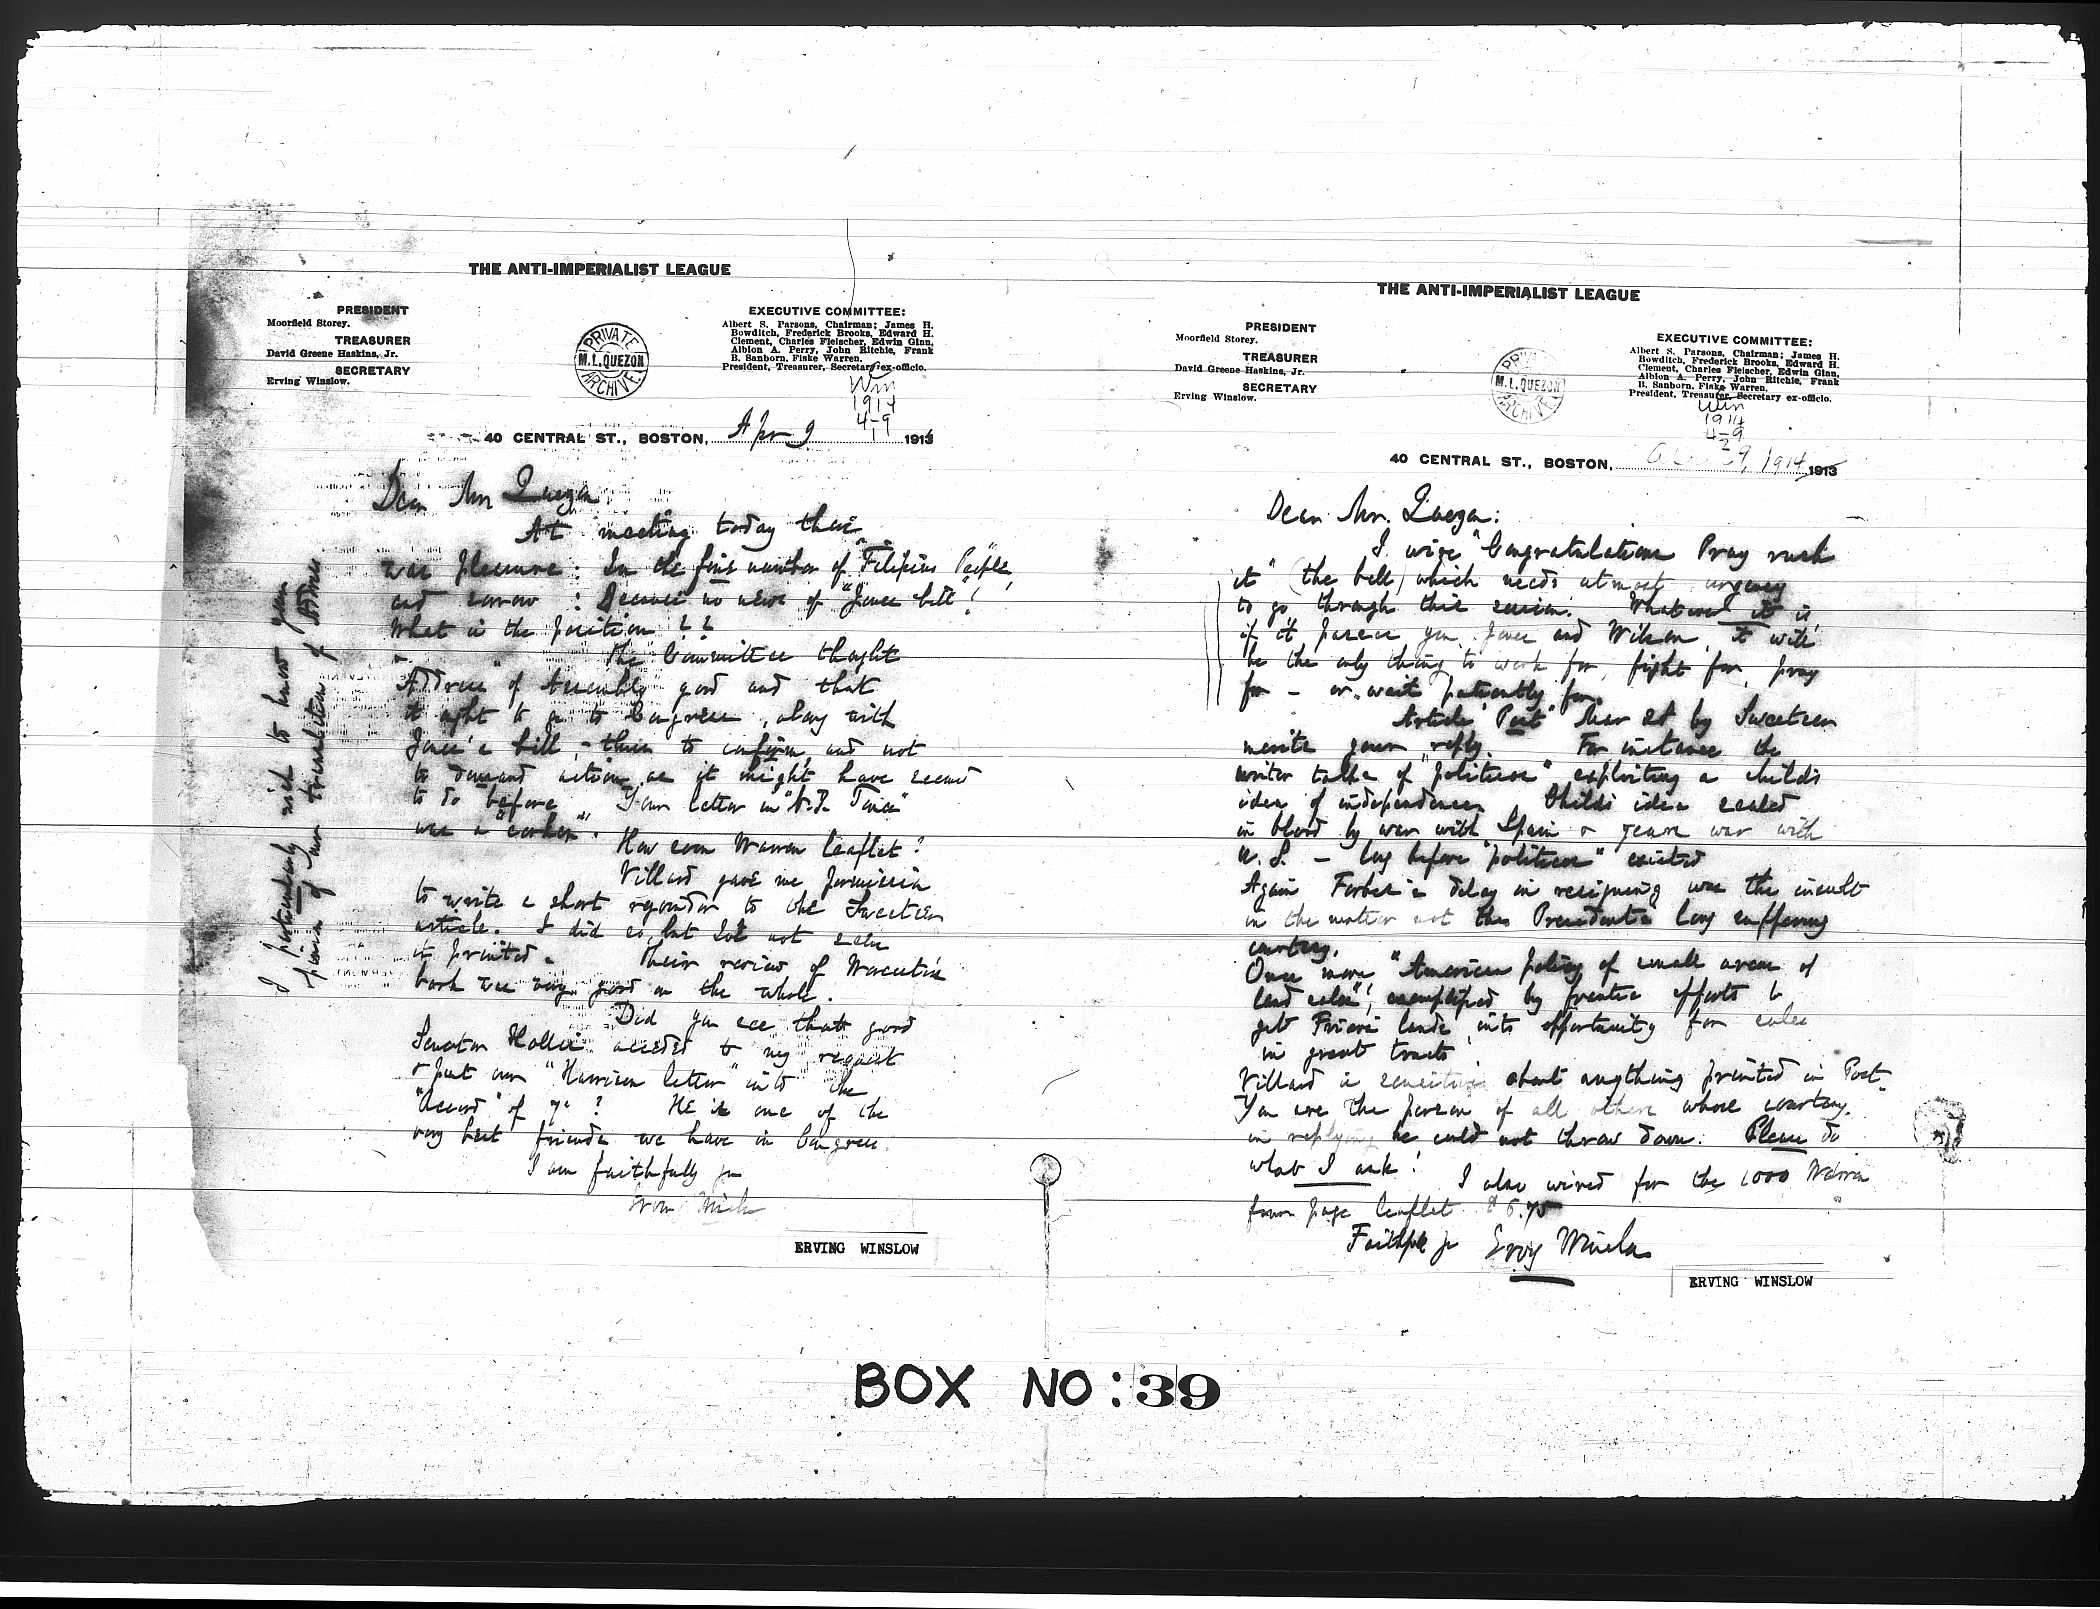 THE ANTI-IMPERIALIST LEAGUE
PRESIDENT
Moorfield Storey.
TREASURER
David Greene Haskins, Jr.
SECRETARY
Erving Winslow.
PRIVATE
M.L.QUEZON
ARCHIVE
EXECUTIVE COMMITTEE:
Albert S. Parsons, Chairman; James H.
Bowditch, Frederick Brooks, Edward H.
Clement, Charles Fleischer, Edwin Ginn,
Albion A. Perry, John Ritchie, Frank
B. Sanborn, Fiske Warren.
President, Treasurer, Secretary ex-officio.
Win
1914
4-9
1
40 CENTRAL ST., BOSTON, Apr 9 1914
Dear Mr Quezon
At meeting today there
was pleasure: In the fine number of "Filipino People"
and sorrow: Because no news of "Jones bill"!
What is the position ??
The Committee thought
"Address" of Assembly good and that
it ought to go to Congress, along with
Jones's bill, - then to confirm, and not
to demand action as it might have seemed
to do before. Your letter in "N.Y. Times"
was a "corker".
How soon Warren leaflet?
Villard gave me permission
to write a short rejoinder to the Sweetser
article. I did so, but did not see
it printed. Their review of Worcester's
book was very good on the whole.
Did you see that good
Senator Hollis acceded to my request
& put our "Harrison letter" into the
"Record" of 7th? He is one of the
very best friends we have in Congress.
I am faithfully yrs
Erving Winslow
ERVING WINSLOW
I particularly wish to know your
opinion of our treatment of address
THE ANTI-IMPERIALIST LEAGUE
PRESIDENT
Moorfield Storey.
TREASURER
David Greene Haskins, Jr.
SECRETARY
Erving Winslow.
PRIVATE
M.L.QUEZON
ARCHIVE
EXECUTIVE COMMITTEE:
Albert S. Parsons, Chairman; James H.
Bowditch, Frederick Brooks, Edward H.
Clement, Charles Fleischer, Edwin Ginn,
Albion A. Perry, John Ritchie, Frank
B. Sanborn, Fiske Warren.
President, Treasurer, Secretary ex-officio.
Win
1914
4-9
2
40 CENTRAL ST., BOSTON, 9, 1914, 1913
Dear Mr. Quezon:
I wire "Congratulations Pray rush
it" (the bill) which needs utmost urgency
to go through this session. Whatever it is,
if it passes you, Jones and Wilson, it will
be the only thing to work for, fight for, pray
for - or wait patiently for.
Article "Post" Mar 28 by Sweetser
merits your reply. For instance the
writer talks of "politicos" exploiting a child's
idea of independence. Childs idea sealed
in blood by war with Spain & years war with
U. S. - long before "politicos" existed
Again Forbes's delay in resigning was the insult
in the matter not the President's long suffering
courtesy.
Once more "American policy of small areas of
land sales", exemplified by frantic efforts to
get Friars lands into opportunity for sales
in great tracts
Villard is sensitive about anything printed in Post.
You are the person of all others whose courtesy
in replying he could not throw down. Please do
what I ask! I also wired for the 1000 Warren
four page leaflet $6.75
Faithfully yr Erving Winslow
ERVING WINSLOW
BOX NO: 39